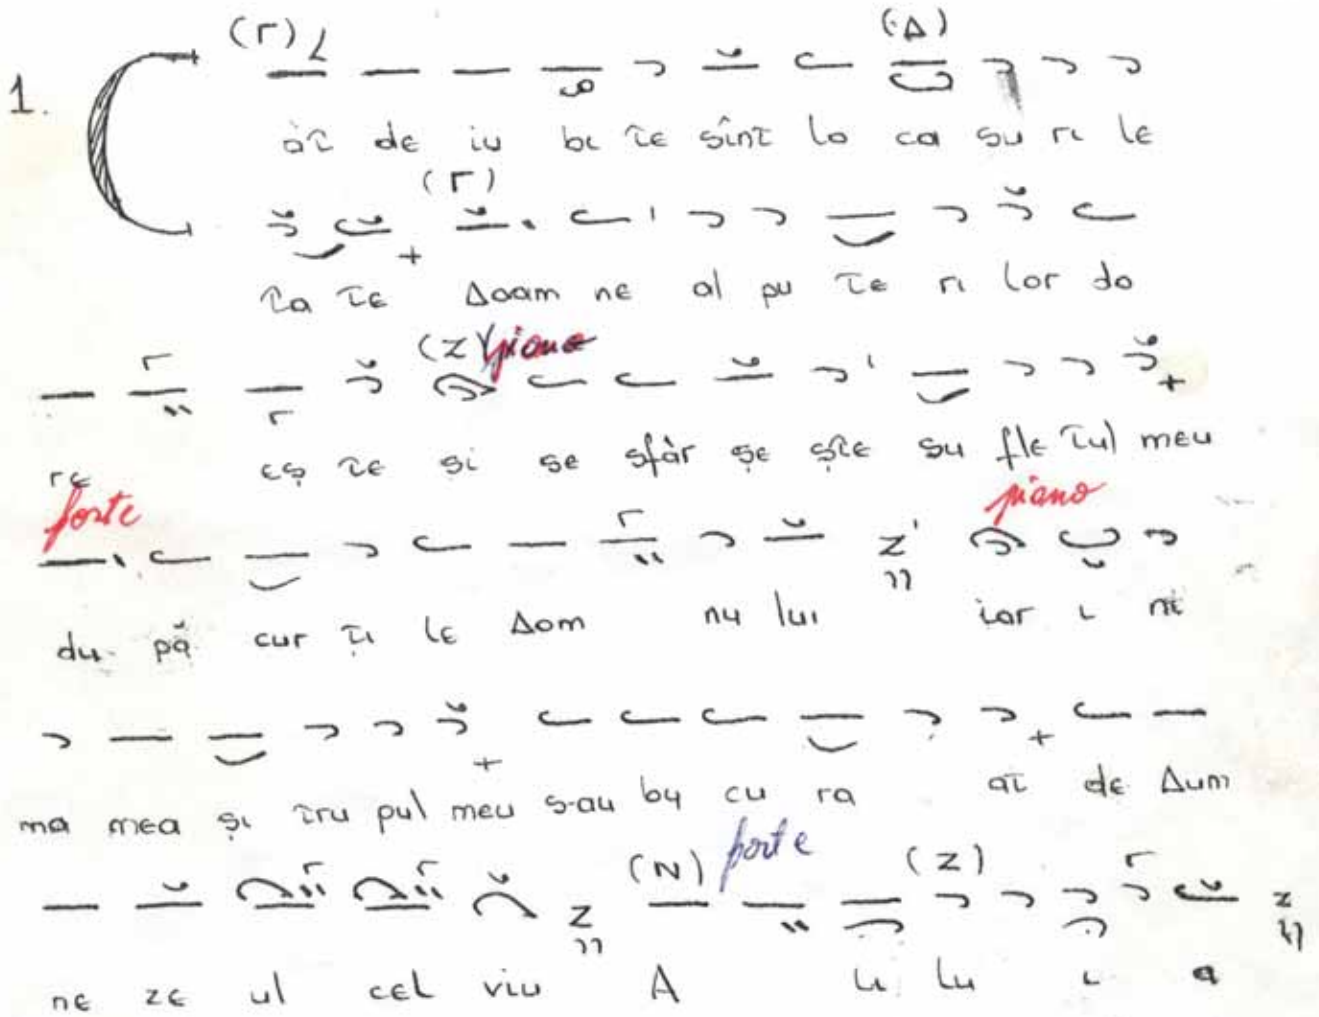 (Γ)
(Δ)
1. C ât de iu bi te sînt lo ca su ri le
(Γ)
ta te Doam ne al pu te ri lor do
(Z) piano
re eş te si se sfâr şe şte su fle tul meu
forte piano
du pă cur ţi le Dom nu lui iar i ni
ma mea şi tru pul meu s-au bu cu ra at de Dum
(N) forte (Z)
ne ze ul cel viu A li lu i a